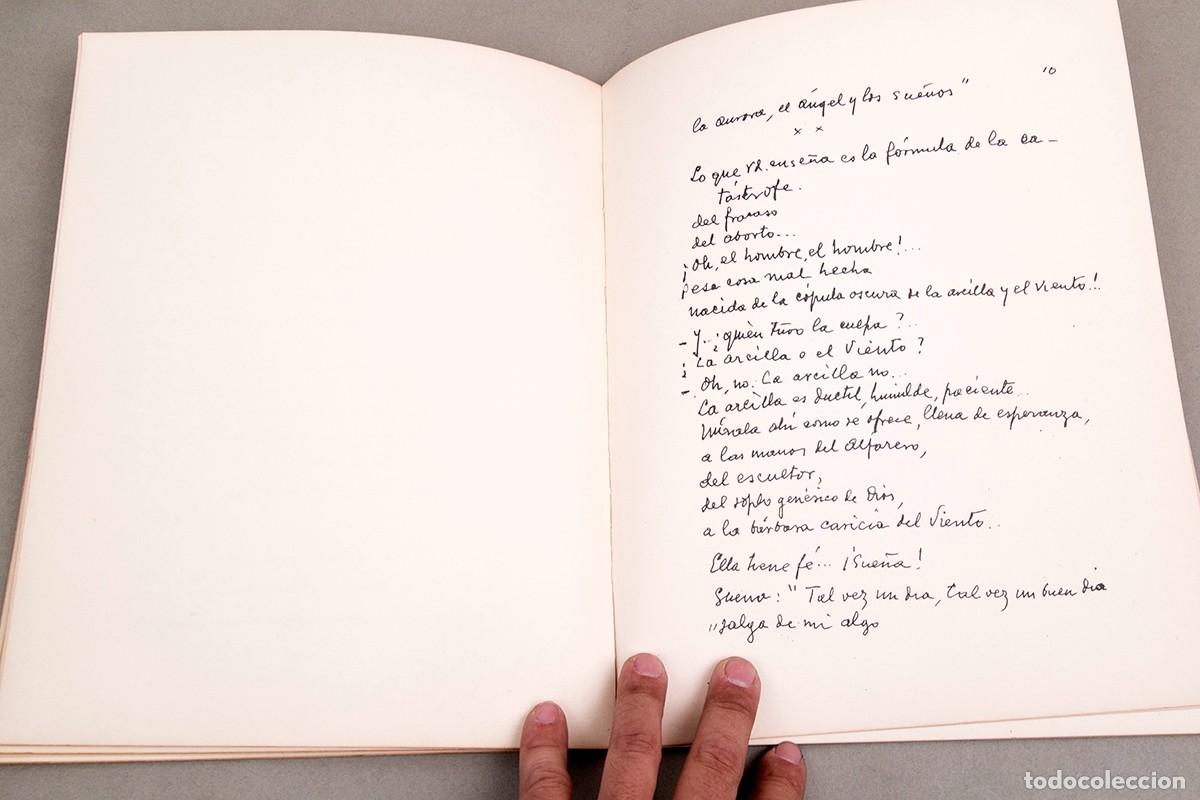 10
la aurora, el ángel y los sueños"
x x
Lo que Vd. enseña es la fórmula de la ca-
tástrofe.
del fracaso
del aborto...
¡Oh, el hombre, el hombre!...
¡esa cosa mal hecha
nacida de la cópula oscura de la arcilla y el viento!..
- Y..¿quién tuvo la culpa?..
¿La arcilla o el Viento?
-. Oh, no. La arcilla no...
La arcilla es ductil, humilde, paciente...
Mírala ahí como se ofrece, llena de esperanza,
a las manos del alfarero,
del escultor,
del soplo genésico de Dios,
a la bárbara caricia del Viento..
Ella tiene fé... ¡Sueña!
Suena: "Tal vez un dia, tal vez un buen dia
"salga de mi algo
todocoleccion